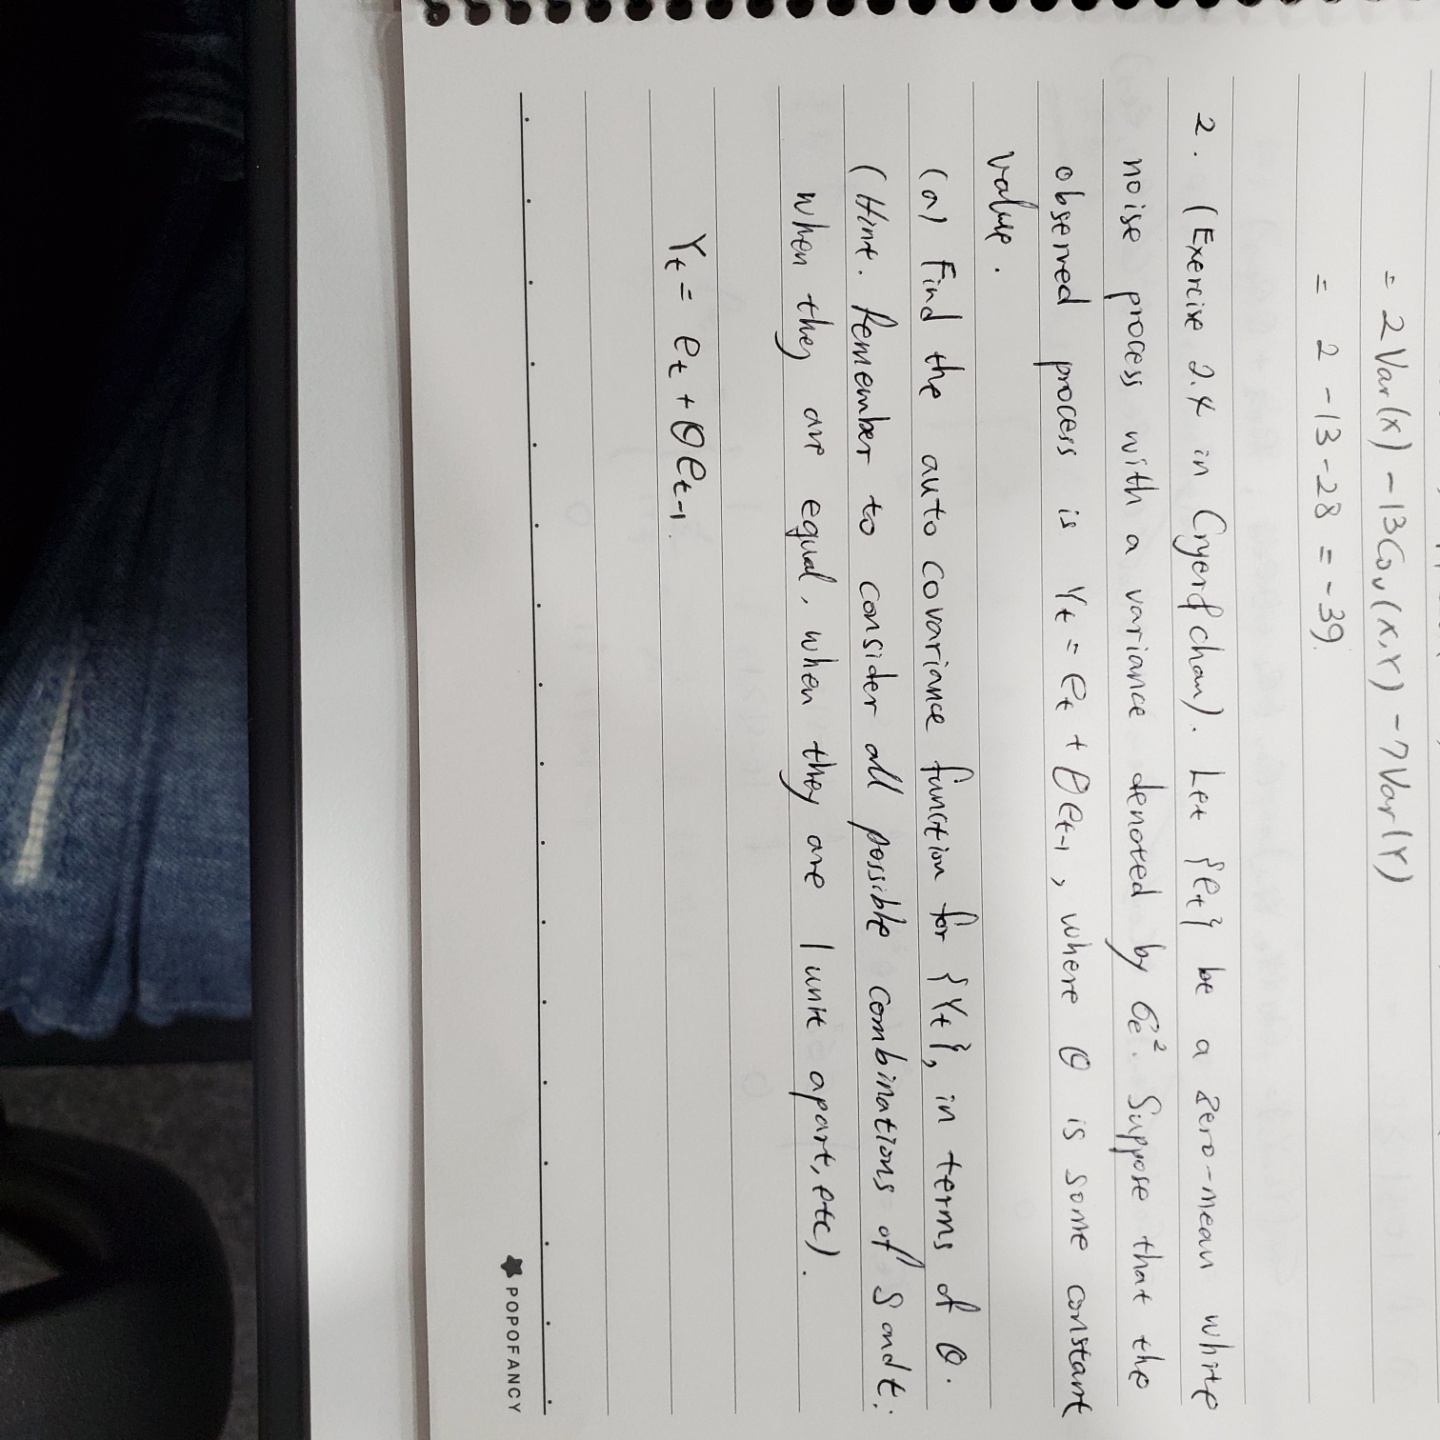 = 2 Var(X) - 13 Cov(X,Y) - 7 Var(Y)
= 2 - 13 - 28 = -39.
2. (Exercise 2.4 in Cryer & chan). Let {et} be a zero-mean white
noise process with a variance denoted by σe². Suppose that the
observed process is Yt = et + θet-1, where θ is some constant
value.
(a) Find the auto covariance function for {Yt}, in terms of θ.
(Hint. Remember to consider all possible combinations of S and t:
when they are equal, when they are 1 unit apart, etc).
Yt = et + θet-1.
POPOFANCY